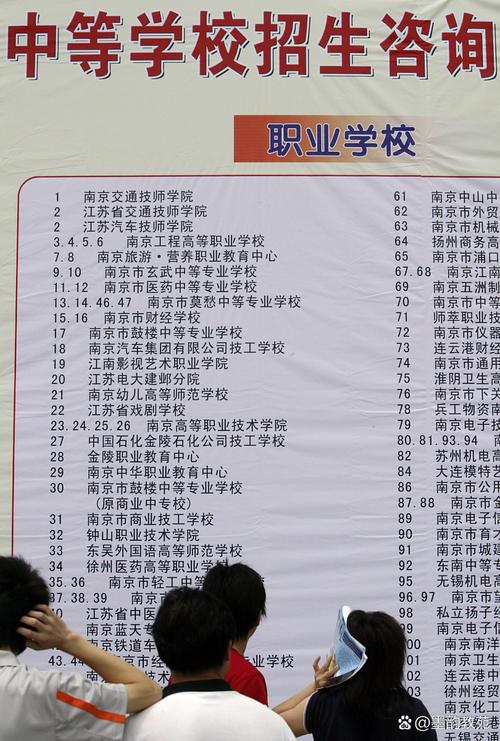 中等学校招生咨询
职业学校
1 南京交通技师学院
2 江苏省交通技师学院
2 江苏汽车技师学院
3.4.5.6 南京工程高等职业学校
7.8 南京旅游·营养职业教育中心
9.10 南京市玄武中等专业学校
11.12 南京市医药中等专业学校
13.14.46.47 南京市莫愁中等专业学校
15.16 南京市财经学校
17 南京市鼓楼中等专业学校
18 南京汽车集团有限公司技工学校
19 江南影视艺术职业学院
20 江苏电大建邺分院
21 南京幼儿高等师范学校
22 江苏省戏剧学校
23.24.25.26 南京高等职业技术学院
27 中国石化金陵石化公司技工学校
28 金陵职业教育中心
29 南京中华职业教育中心
30 南京市鼓楼中等专业学校
(原商业中专校)
31 南京市商业技工学校
32 钟山职业技术学院
33 东吴外国语高等师范学校
34 徐州医药高等职业学校
35.36 南京市轻工中等
37.38.39 南京市望
40 江苏省中医
南京蓝天专
南京铁道车
43.44
61 南京中山中
62 南京市外贸
63 南京市机械
64 扬州商务高
65 南京市浦口
67.68 南京江南
69 南京五洲制
70 南京市中等
71 师萃职业技
72 南京市仪器
73 连云港财经
74 南京市通用
75 淮阴卫生高
76 南京市下关
78 兵工物资南
79 南京电子技
80.81.93.94
82 苏州机电高
84 大连模特艺
86 南京市公用
87.88 南京市金
89 南京电子信
90 南京市育才
91 南京市城建
92 东南中等专
95 无锡机电高
96.97 南京
98 私立扬子
99 南京电子
100 南京卫生
101 南京卫生
连云港中
03 徐州经贸
南京化工
无锡交通
@墨韵教苑